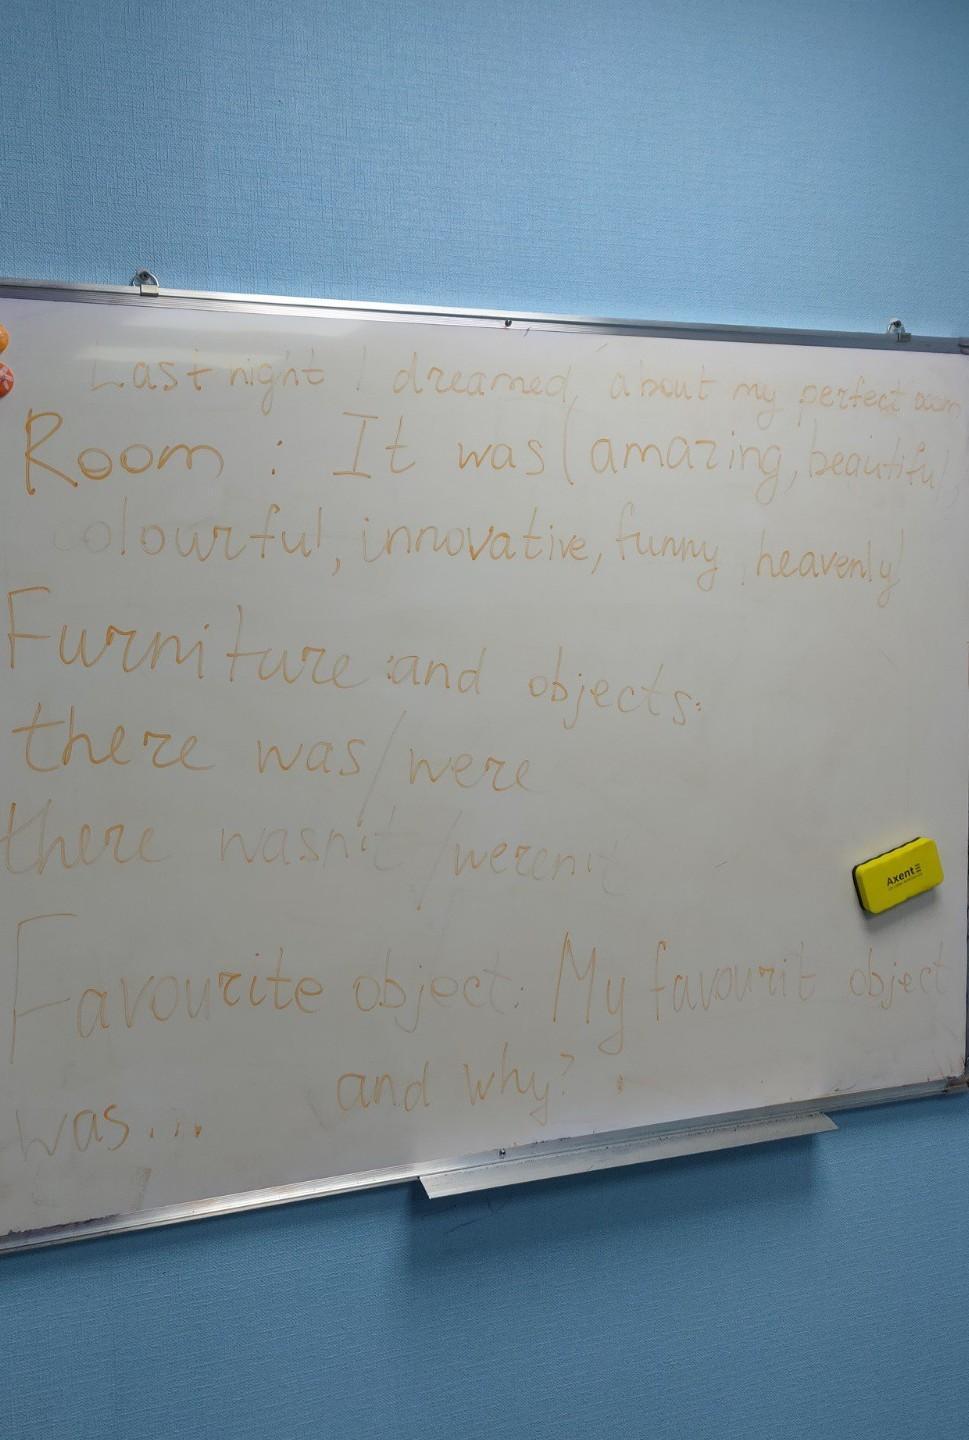 Last night I dreamed about my perfect room
Room : It was (amazing, beautiful,
colourful, innovative, funny, heavenly)
Furniture and objects:
there was/were
there wasn't/weren't
Favourite object: My favourit object
was... and why?
Axent